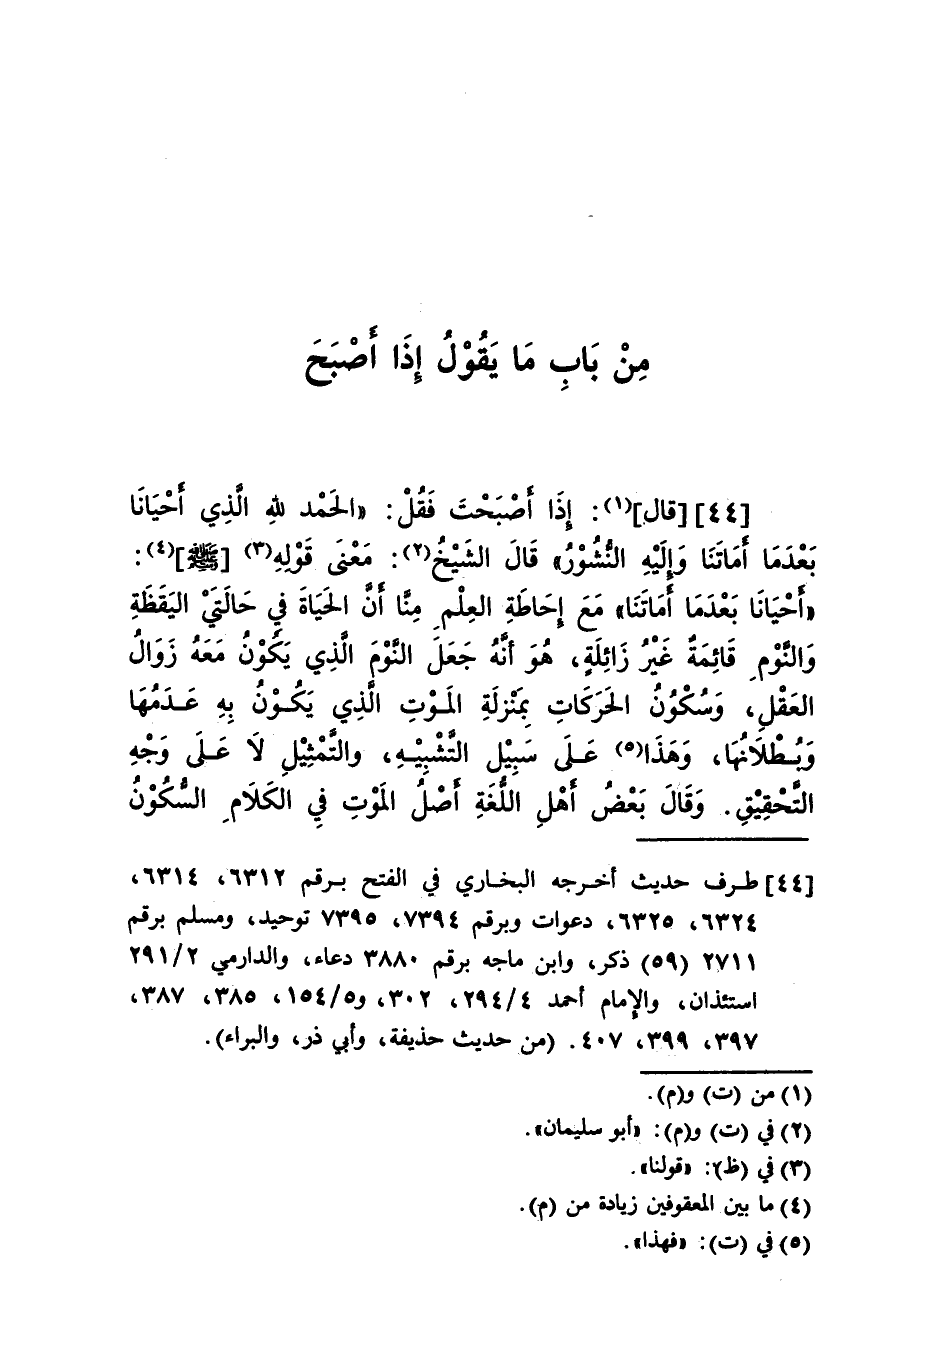 مِنْ بَابِ مَا يَقُوْلُ إِذَا أَصْبَحَ
[٤٤] [قال](١): إِذَا أَصْبَحْتَ فَقُلْ: «الحَمْد للهِ الَّذِي أَحْيَانَا
بَعْدَمَا أَمَاتَنَا وَإِلَيْهِ النُّشُوْرُ» قَالَ الشَيْخُ(٢): مَعْنَى قَوْلِهِ(٣) [ﷺ](٤):
«أَحْيَانَا بَعْدَمَا أَمَاتَنَا» مَعَ إِحَاطَةِ العِلْمِ مِنَّا أَنَّ الحَيَاةَ فِي حَالَتَيْ اليَقَظَةِ
وَالنَّوْمِ قَائِمَةٌ غَيْرُ زَائِلَةٍ، هُوَ أَنَّهُ جَعَلَ النَّوْمَ الَّذِي يَكُوْنُ مَعَهُ زَوَالُ
العَقْلِ، وَسُكُوْنُ الحَرَكَاتِ بِمَنْزِلَةِ المَوْتِ الَّذِي يَكُوْنُ بِهِ عَدَمُهَا
وَبُطْلَانُهَا، وَهَذَا(٥) عَلَى سَبِيْلِ التَّشْبِيْهِ، والتَّمْثِيْلِ لَا عَلَى وَجْهِ
التَّحْقِيْقِ. وَقَالَ بَعْضُ أَهْلِ اللُّغَةِ أَصْلُ المَوْتِ فِي الكَلَامِ السُّكُوْنُ
[٤٤] طرف حديث أخرجه البخاري في الفتح برقم ٦٣١٢، ٦٣١٤،
٦٣٢٤، ٦٣٢٥، دعوات وبرقم ٧٣٩٤، ٧٣٩٥ توحيد، ومسلم برقم
٢٧١١ (٥٩) ذكر، وابن ماجه برقم ٣٨٨٠ دعاء، والدارمي ٢٩١/٢
استئذان، والإمام أحمد ٢٩٤/٤، ٣٠٢، و١٥٤/٥، ٣٨٥، ٣٨٧،
٣٩٧، ٣٩٩، ٤٠٧. (من حديث حذيفة، وأبي ذر، والبراء).
(١) من (ت) و(م).
(٢) في (ت) و(م): «أبو سليمان».
(٣) في (ظ): «قولنا».
(٤) ما بين المعقوفين زيادة من (م).
(٥) في (ت): «فهذا».